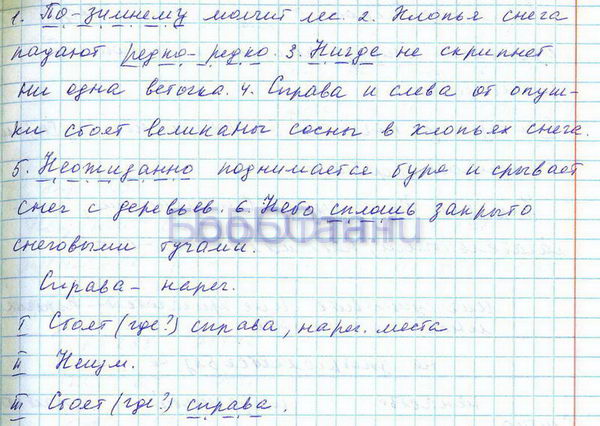 1. По-зимнему молчит лес. 2. Хлопья снега
падают редко-редко. 3. Нигде не скрипнет
ни одна веточка. 4. Справа и слева от опуш-
ки стоят великаны сосны в хлопьях снега.
5. Неожиданно поднимается буря и срывает
снег с деревьев. 6. Небо сплошь закрыто
снеговыми тучами.
Справа – нареч.
I Стоят (где?) справа, нареч. места
II Неизм.
III Стоят (где?) справа.